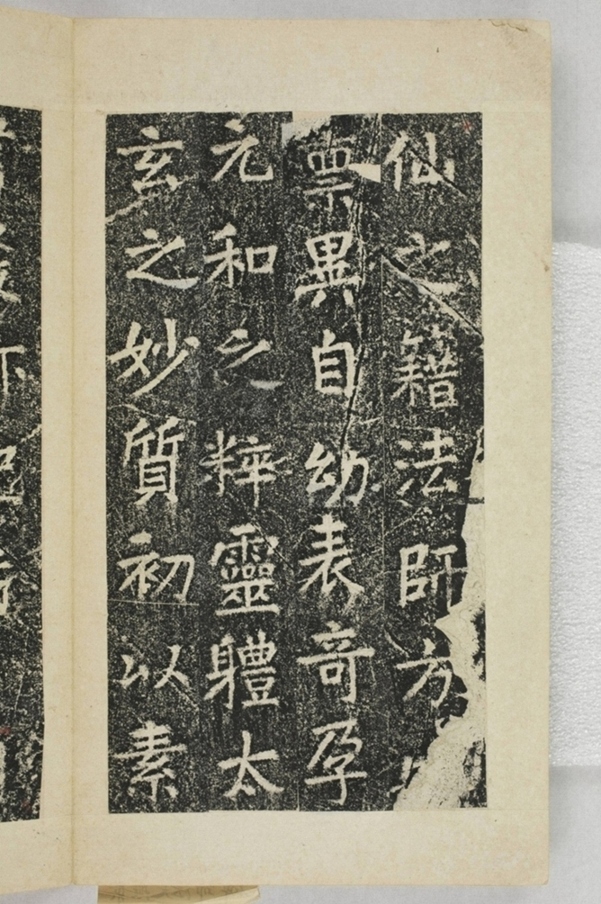 仙之籍法師方
禀異自幼表奇孕
元和之粹靈體太
玄之妙質初以素